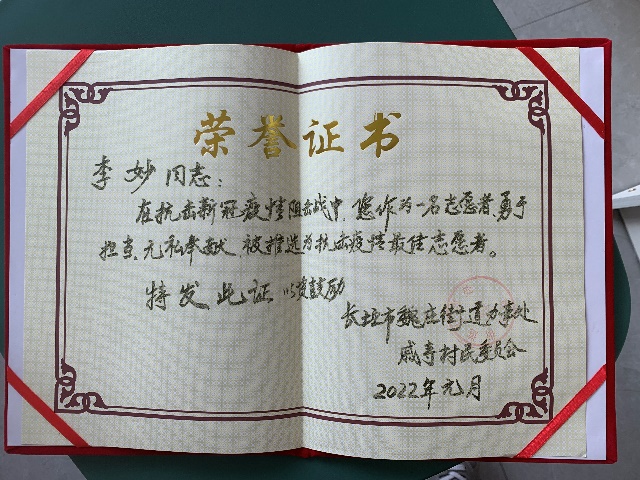 荣誉证书
李妙同志:
在抗击新冠疫情阻击战中,您作为一名志愿者,勇于
担当、无私奉献,被推选为抗击疫情最佳志愿者。
特发此证 以资鼓励
长垣市魏庄街道办事处
戚寺村民委员会
2022年元月